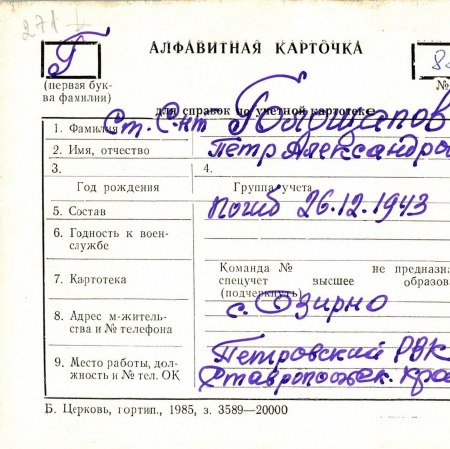 271
Г
АЛФАВИТНАЯ КАРТОЧКА
(первая бук-
ва фамилии)
№
для справок по учетной картотеке
1. Фамилия Ст. С-нт
2. Имя, отчество Пётр Александро
3.
4.
Год рождения
Группа учета
5. Состав погиб 26.12.1943
6. Годность к воен-
службе
Команда № не предназна
7. Картотека
спецучет высшее образова
(подчеркнуть)
8. Адрес м-житель-
ства и № телефона
с. Озирно
9. Место работы, дол-
жность и № тел. ОК
Петровский РВК
Ставропольск. кра
Б. Церковь, гортип., 1985, з. 3589—20000